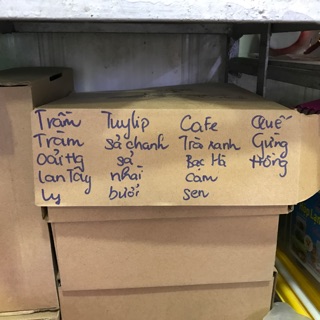 Trầm Tuylip Cafe Quế
Tràm Sả chanh Trà xanh Gừng
Oải Hg Sả Bạc Hà Hồng
Lan Tây Nhài Cam
Ly Bưởi Sen